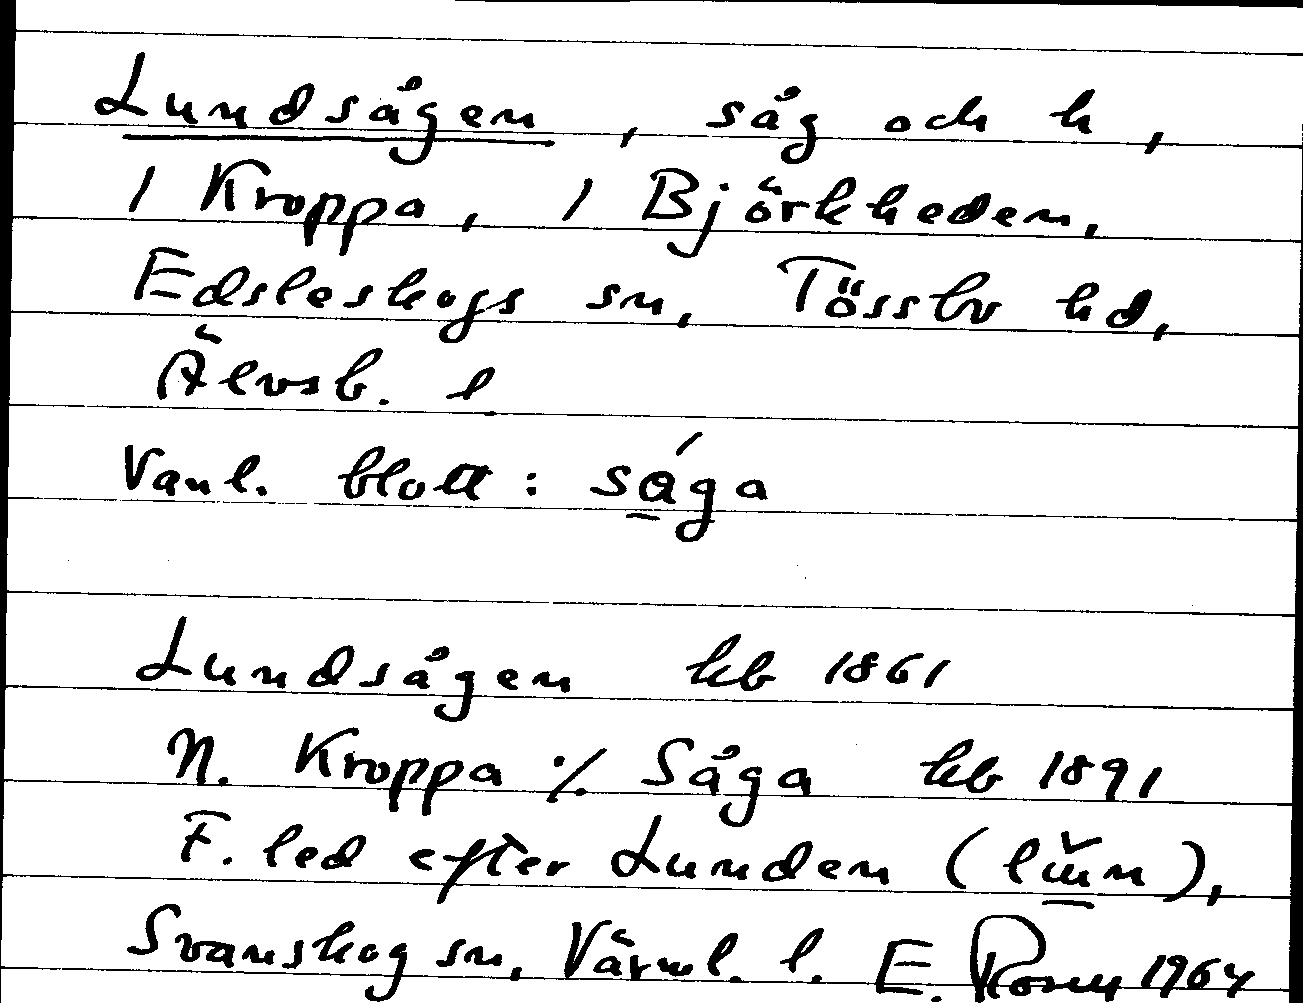 Lundsågen, såg och h,
1 Kroppa, 1 Björkheden,
Edsleskogs sn, Tössbo hd,
Älvsb. l
Vanl. blott: sá̱ga
Lundsågen hb 1861
N. Kroppa ./. Såga hb 1891
F. led efter Lunden (),
Svanskog sn, Värml. l. E. 1964